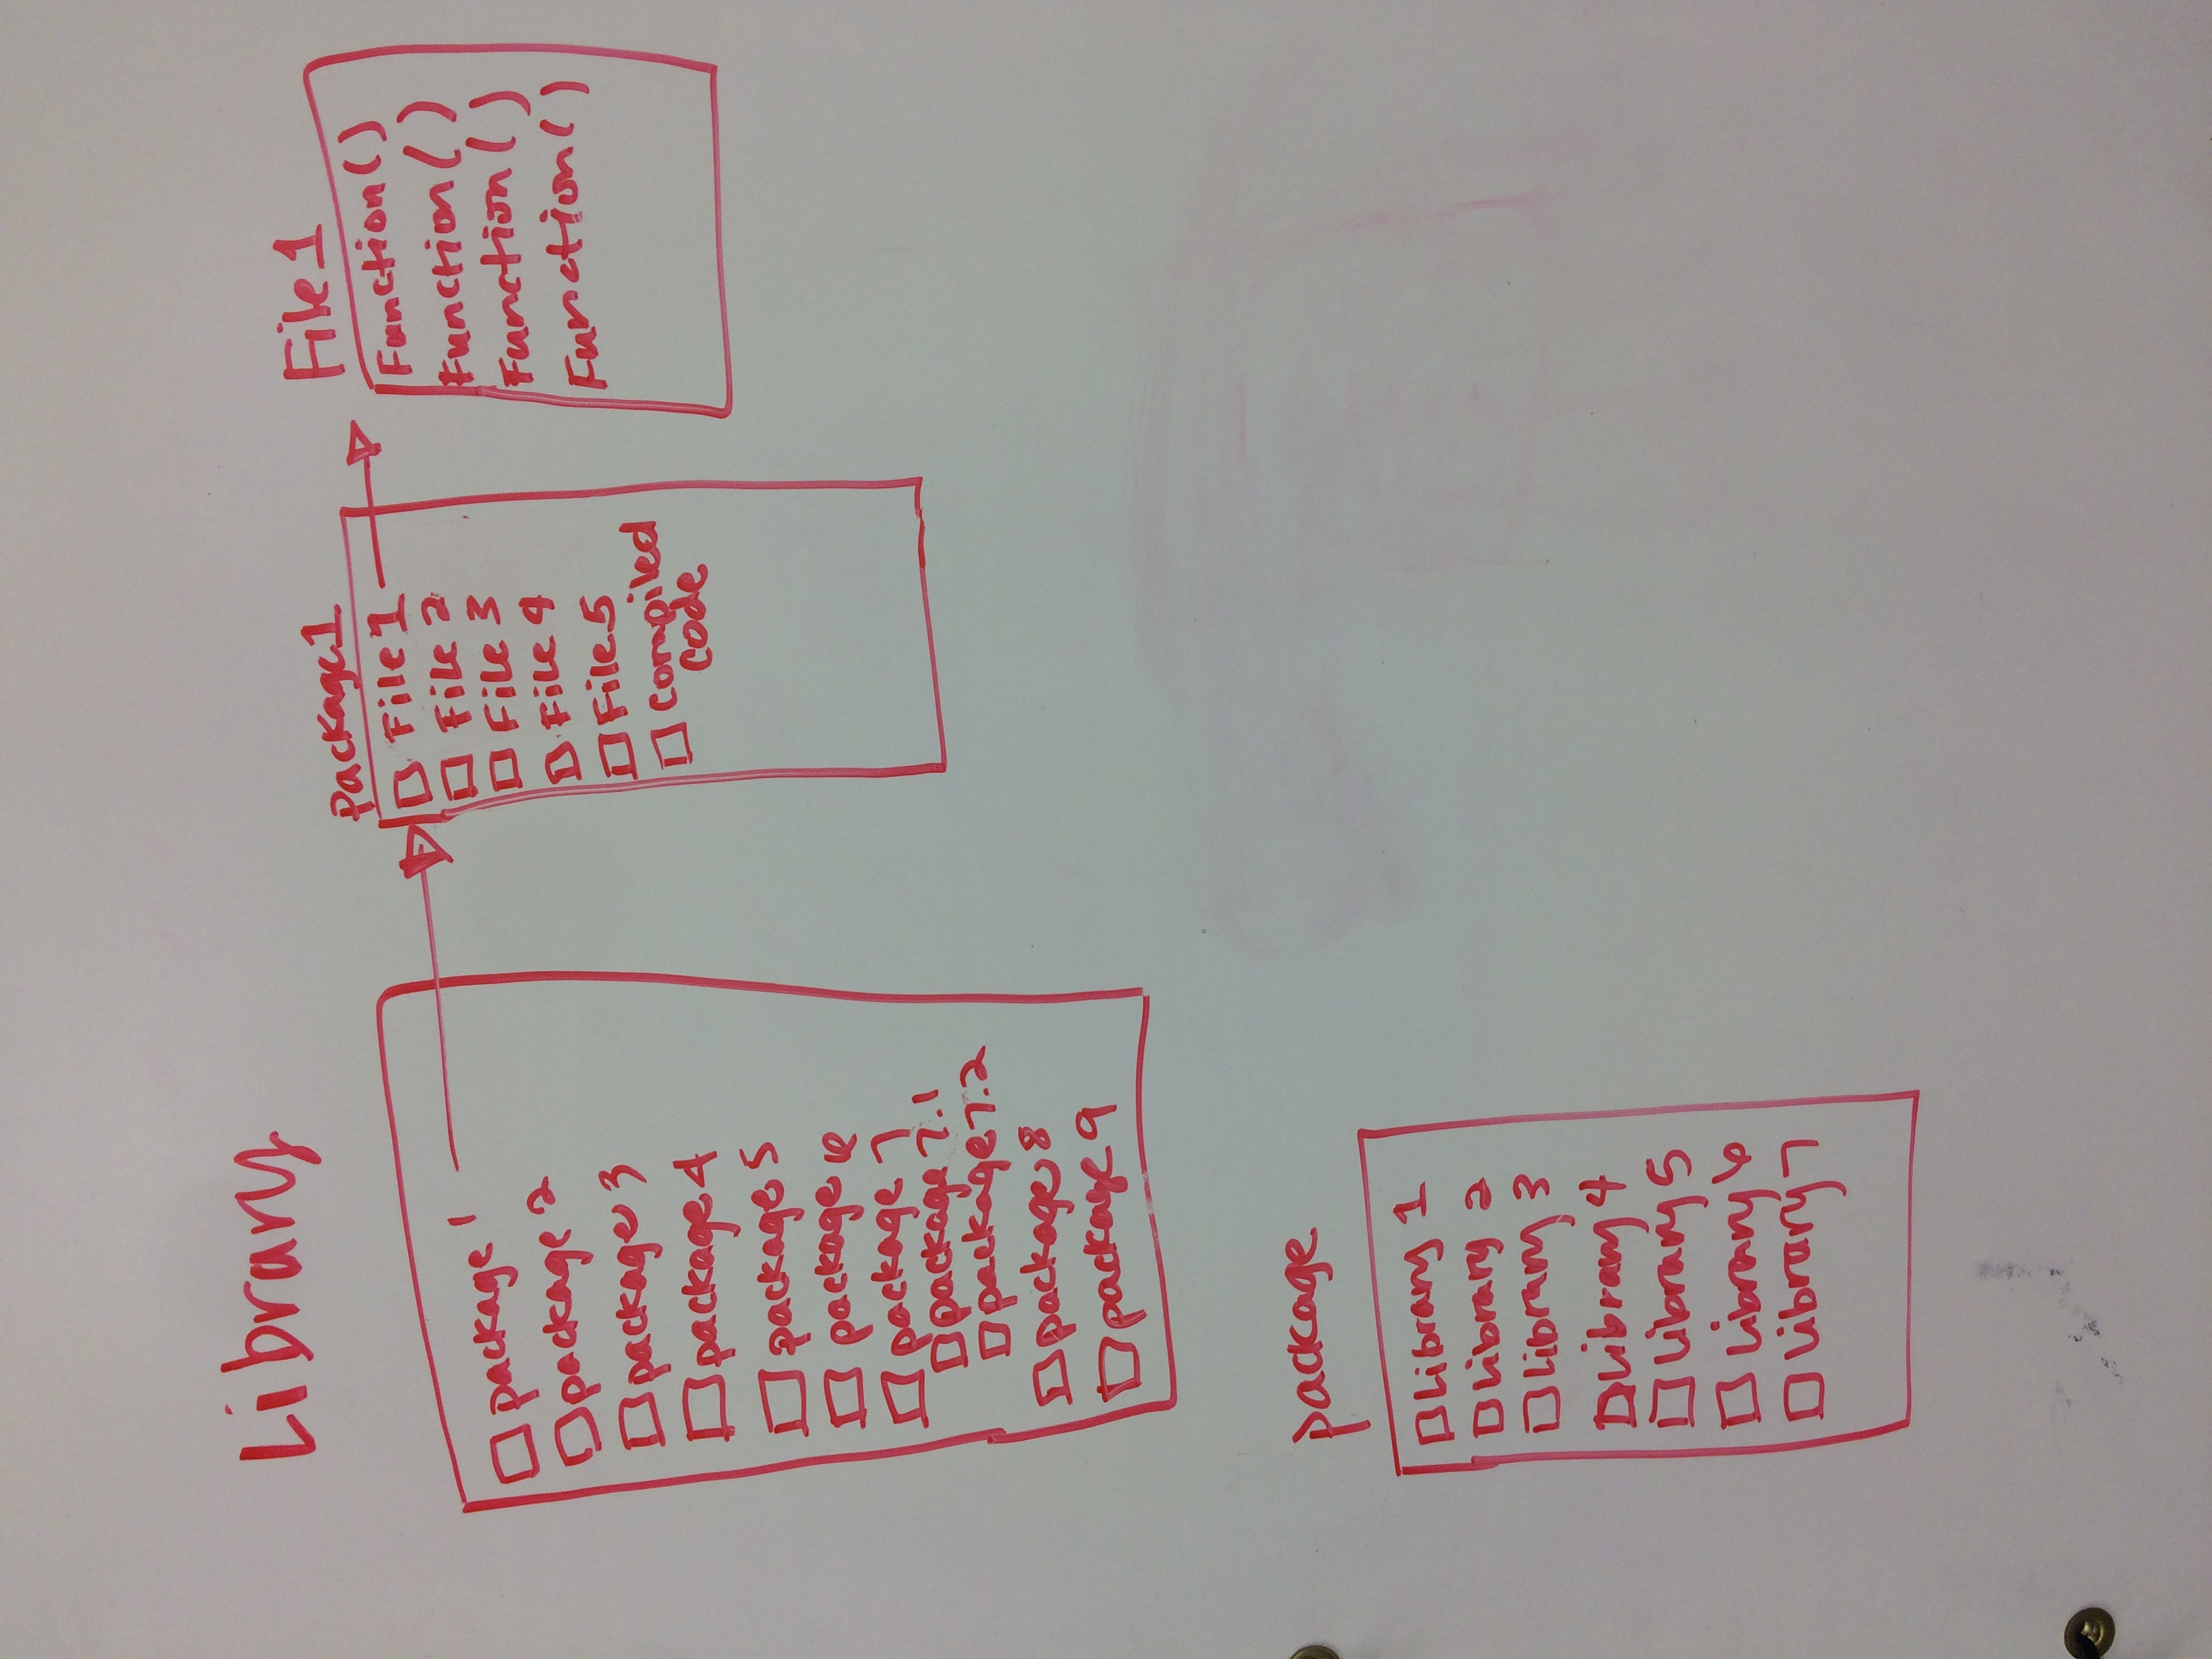 Library
package 1
package 2
package 3
package 4
package 5
package 6
package 7
package 7.1
package 7.2
package 8
package 9
package1
File 1
File 2
File 3
File 4
File 5
Compiled
code
File 1
Function()
Function()
Function()
Function()
package
Library 1
Library 2
Library 3
Library 4
Library 5
Library 6
Library 7